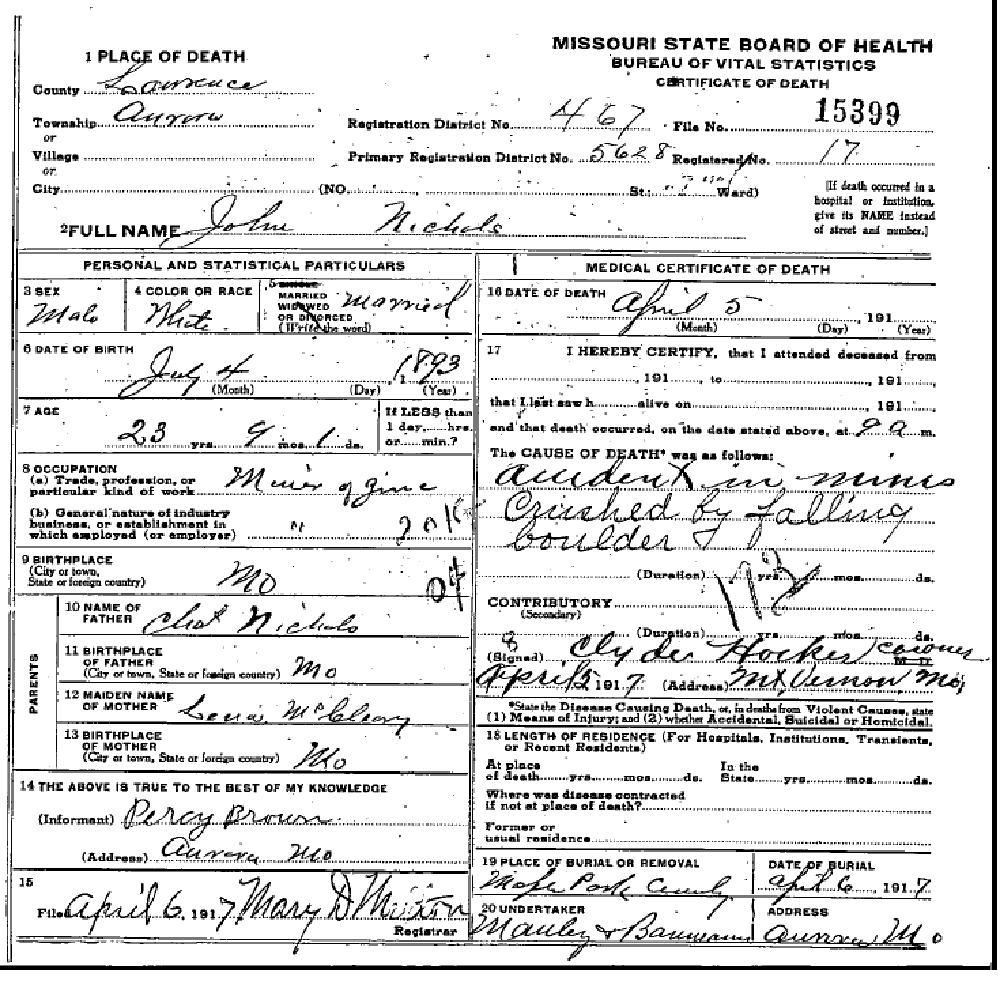 MISSOURI STATE BOARD OF HEALTH
BUREAU OF VITAL STATISTICS
CERTIFICATE OF DEATH
1 PLACE OF DEATH
County Lawrence
Township Aurora
or
Village
or
City (NO. St; Ward)
Registration District No. 467 File No. 15399
Primary Registration District No. 5628 Registered No. 17
[If death occurred in a
hospital or institution,
give its NAME instead
of street and number.]
2 FULL NAME John Nichols
PERSONAL AND STATISTICAL PARTICULARS
3 SEX
Male
4 COLOR OR RACE
White
5
MARRIED
WIDOWED
OR DIVORCED
(Write the word)
Married
6 DATE OF BIRTH
July 4 1893
(Month) (Day) (Year)
7 AGE
23 yrs. 9 mos. 1 ds.
If LESS than
1 day, hrs.
or min.?
8 OCCUPATION
(a) Trade, profession, or
particular kind of work Miner of zinc
(b) General nature of industry
business, or establishment in
which employed (or employer) "
9 BIRTHPLACE
(City or town,
State or foreign country) Mo 04
PARENTS
10 NAME OF
FATHER Chat Nichols
11 BIRTHPLACE
OF FATHER
(City or town, State or foreign country) Mo
12 MAIDEN NAME
OF MOTHER
13 BIRTHPLACE
OF MOTHER
(City or town, State or foreign country) Mo
14 THE ABOVE IS TRUE TO THE BEST OF MY KNOWLEDGE
(Informant) Percy Brown
(Address) Aurora Mo
15
Filed April 6, 1917 Mary D
Registrar
MEDICAL CERTIFICATE OF DEATH
16 DATE OF DEATH April 5, 191
(Month) (Day) (Year)
17 I HEREBY CERTIFY, that I attended deceased from
, 191 , to , 191
that I last saw h alive on , 191
and that death occurred, on the date stated above, at 9 a m.
The CAUSE OF DEATH* was as follows:
accident in mines
Crushed by falling
boulder
(Duration) yrs. mos. ds.
CONTRIBUTORY
(Secondary)
(Duration) yrs. mos. ds.
8
(Signed) Clyde Hocker coroner
M. D.
April 5 1917 (Address) Mt, Vernon Mo,
*State the Disease Causing Death, or, in deaths from Violent Causes, state
(1) Means of Injury; and (2) whether Accidental, Suicidal or Homicidal.
18 LENGTH OF RESIDENCE (For Hospitals, Institutions, Transients,
or Recent Residents.)
At place
of death yrs. mos. ds.
In the
State yrs. mos. ds.
Where was disease contracted
if not at place of death?
Former or
usual residence
19 PLACE OF BURIAL OR REMOVAL
Park
DATE OF BURIAL
April 6, 1917
20 UNDERTAKER
Manley & Baumann
ADDRESS
Aurora Mo